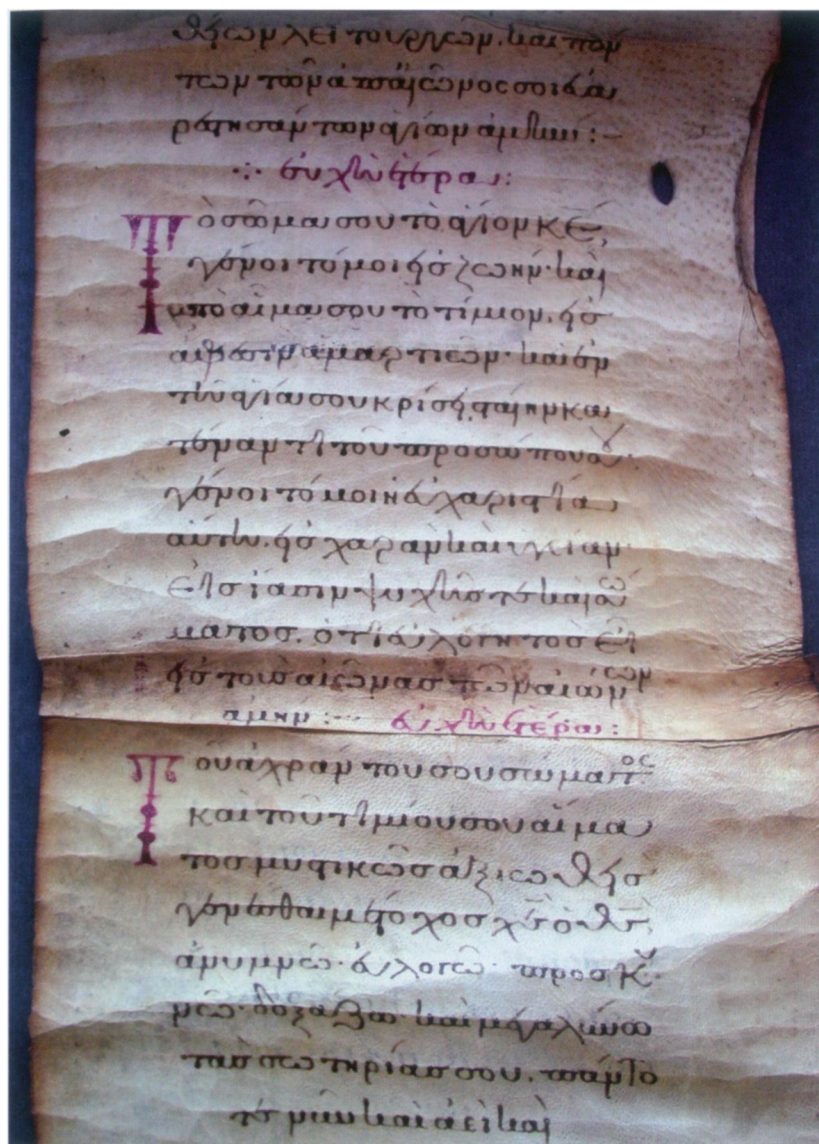 θείων λειτουργιῶν. καὶ πάν
των τῶν ἀπ' αἰῶνος σοι εὐα
ρεστησάντων ἁγίων ἀμήν :-
εὐχὴ ἑτέρα :
Τὸ σῶμα σου τὸ ἅγιον κε
γένοιτό μοι εἰς ζωήν. καὶ
τὸ αἷμα σου τὸ τίμιον, εἰς
ἄφεσιν ἁμαρτιῶν. καὶ ἐν
τῇ κρίσει
τοῦ προσώπου
γένοιτό μοι ἡ εὐχαριστία
αὕτη. εἰς χαρὰν καὶ ὑγείαν
εἰς ἴασιν ψυχῆς τε καὶ σώ
ματος. ὅτι εὐλογητὸς εἶ
εἰς τοὺς αἰῶνας τῶν αἰώνων
ἀμήν : εὐχὴ ἑτέρα :
Τοῦ ἀχράντου σου σώματος
καὶ τοῦ τιμίου σου αἵμα
τος μυστικῶς ἀξιωθεὶς
γενέσθαι μέτοχος χε ὁ θς
ἀνυμνῶ. εὐλογῶ. προσκυ
νῶ. δοξάζω. καὶ μεγαλύνω
τὰς σωτηρίας σου. πάντο
τε νῦν καὶ ἀεὶ καὶ